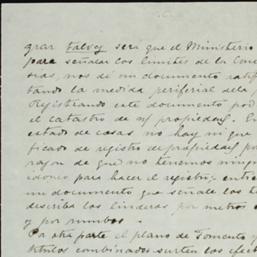 grar talvez será que el Ministerio
para señalar los limites de la Conce
sias, nos dé un documento ratifi
tando la medida periferial de la
Registrando este documento pod
el catastro de n/ propiedad. En
estado de cosas no hay ni que
ficado de registro de propiedad po
razon de que no tenemos ningun
idoneo para hacer el registro; entie
un documento que señale los l
describa los linderos por metros c
y por rumbos.
Por otra parte el plano de Fomento y
titulos combinados surten los efect